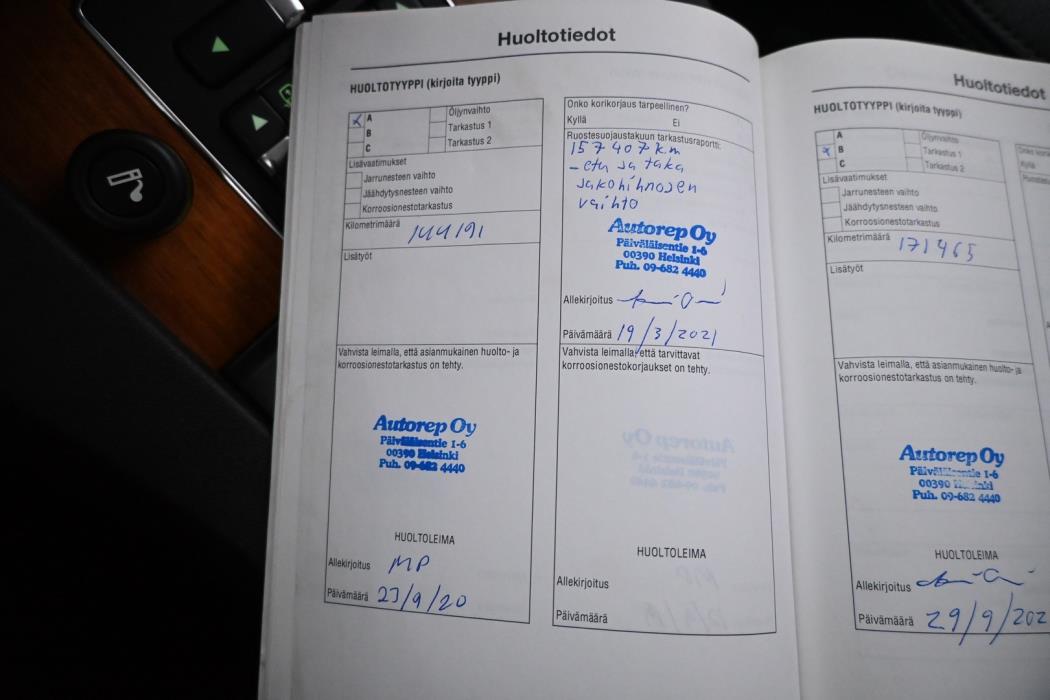 Huoltotiedot
HUOLTOTYYPPI (kirjoita tyyppi)
x A
B
C
Öljynvaihto
Tarkastus 1
Tarkastus 2
Lisävaatimukset
Jarrunesteen vaihto
Jäähdytysnesteen vaihto
Korroosionestotarkastus
Kilometrimäärä 144191
Lisätyöt
Vahvista leimalla, että asianmukainen huolto- ja
korroosionestotarkastus on tehty.
Autorep Oy
Päiväläisentie 1-6
00390 Helsinki
Puh. 09-682 4440
HUOLTOLEIMA
Allekirjoitus MP
Päivämäärä 23/9/20
Onko korikorjaus tarpeellinen?
Kyllä Ei
Ruostesuojaustakuun tarkastusraportti:
157407 km
- etu ja taka
jakohihnojen
vaihto
Autorep Oy
Päiväläisentie 1-6
00390 Helsinki
Puh. 09-682 4440
Allekirjoitus
Päivämäärä 19/3/2021
Vahvista leimalla, että tarvittavat
korroosionestokorjaukset on tehty.
HUOLTOLEIMA
Allekirjoitus
Päivämäärä
Huoltotiedot
HUOLTOTYYPPI (kirjoita tyyppi)
A
x B
C
Öljynvaihto
Tarkastus 1
Tarkastus 2
Lisävaatimukset
Jarrunesteen vaihto
Jäähdytysnesteen vaihto
Korroosionestotarkastus
Kilometrimäärä 171465
Lisätyöt
Vahvista leimalla, että asianmukainen huolto- ja
korroosionestotarkastus on tehty.
Autorep Oy
Päiväläisentie 1-6
00390 Helsinki
Puh. 09-682 4440
HUOLTOLEIMA
Allekirjoitus
Päivämäärä 29/9/202
Onko kori
Kyllä